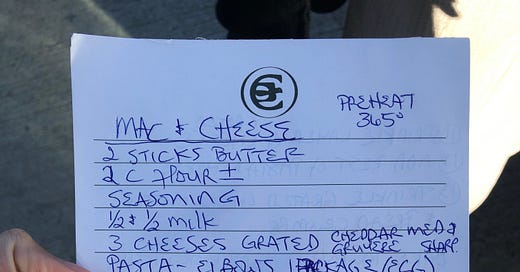 PREHEAT
365°
MAC & CHEESE
2 STICKS BUTTER
2 C FLOUR ±
SEASONING
½ & ½ MILK
3 CHEESES GRATED CHEDDAR MED &
GRUYERE SHARP
PASTA - ELBOWS 1 PACKAGE/(EGG)